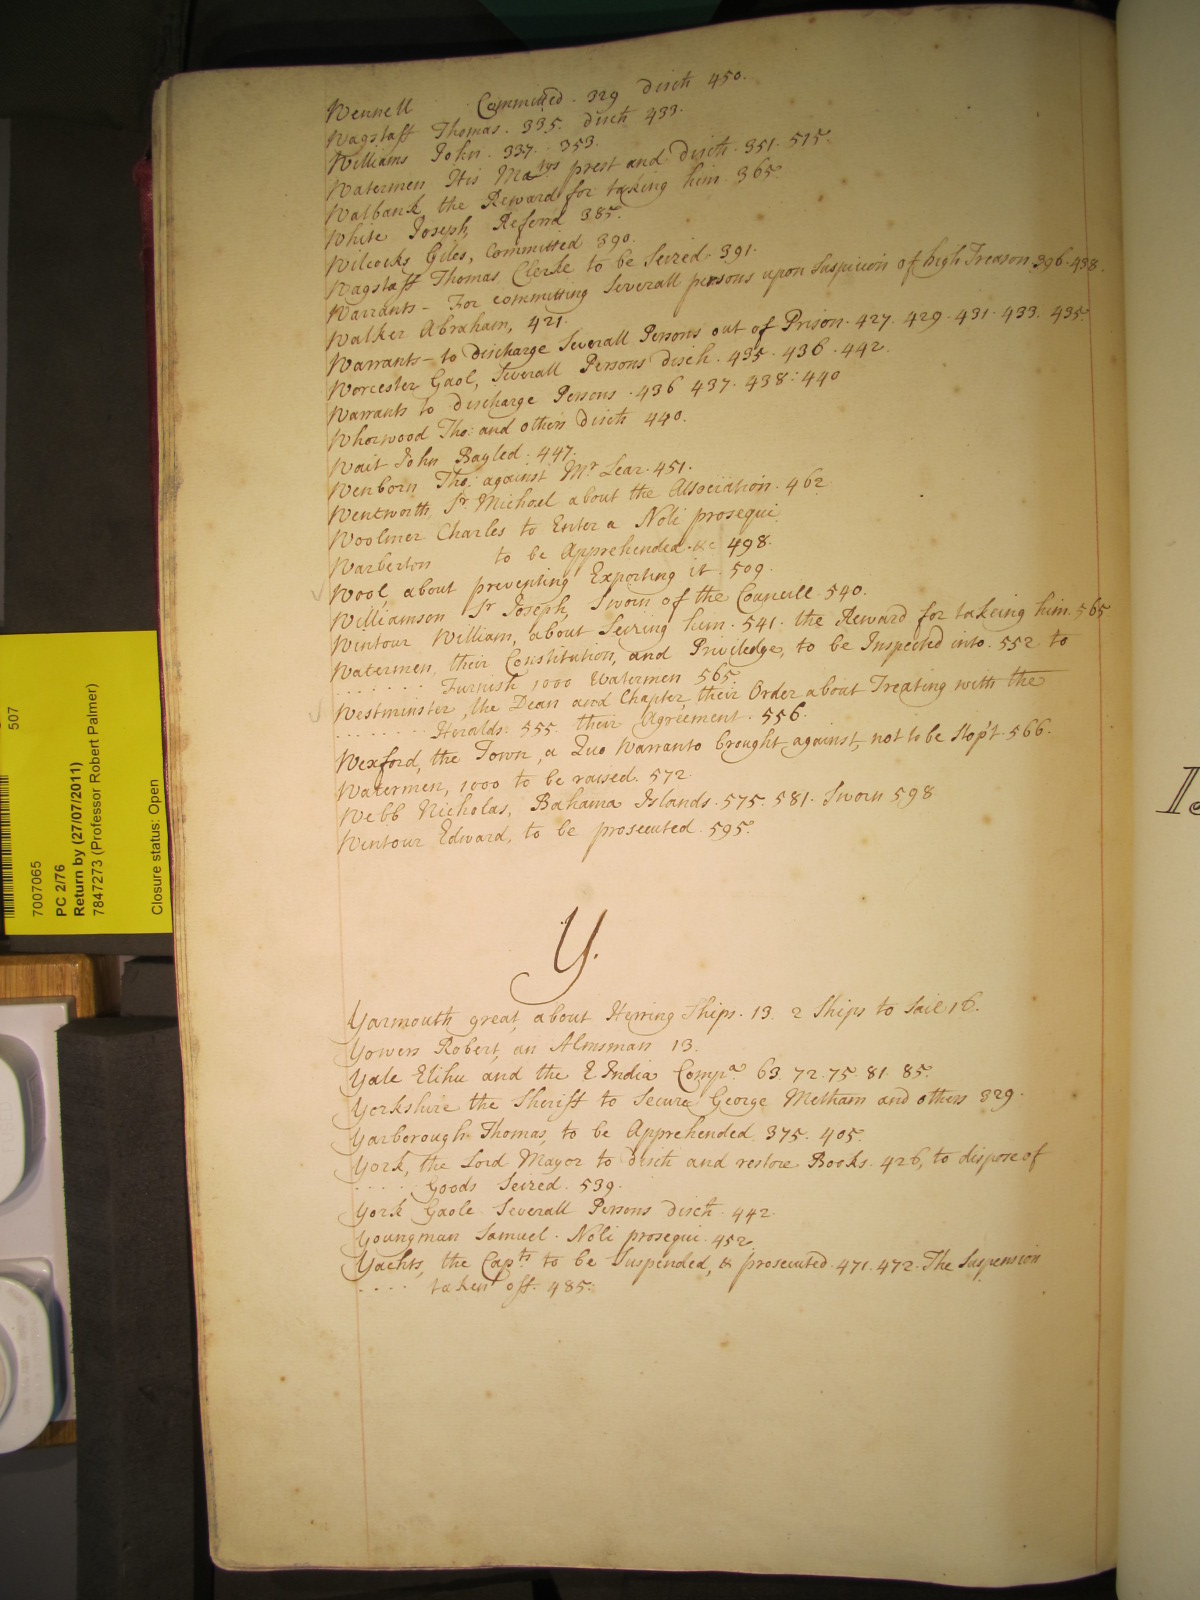 Wennell Committed. 329 disch 450.
Wagstaff Thomas. 335. disch 433.
Williams John. 337. 353.
Watermen His Matys prest and disch. 351. 515.
Walbank the Reward for taking him 365.
White Joseph Refend 385.
Wilcocks Giles, Committed 390.
Wagstaff Thomas Clerke to be Seized. 391.
Warrants - For committing Severall persons upon Suspicion of high Treason 396. 438.
Walker Abraham, 421.
Warrants - to discharge Severall Persons out of Prison. 427. 429. 431. 433. 435.
Worcester Gaol, Severall Persons disch. 435. 436. 442.
Warrants to discharge Persons. 436 437. 438: 440
Whorwood Tho: and others disch 440.
Wait John Bayled. 447.
Wenborn Tho: against Mr Lear. 451.
Wentworth Sr Michael about the Association. 462
Woolmer Charles to Enter a Noli prosequi
Warberton to be Apprehended. &c 498.
Wool, about preventing Exporting it. 509.
Williamson Sr Joseph, Sworn of the Councill. 540.
Wintour William, about Seizing him. 541. the Reward for takeing him. 565
Watermen, their Constitution, and Priviledge, to be Inspected into. 552 to
........ Furnish 1000 Watermen 565.
Westminster, the Dean and Chapter, their Order about Treating with the
........ Heralds. 555. their Agreement. 556.
Wexford, the Town, a Quo Warranto brought against, not to be Stop't. 566.
Watermen, 1000 to be raised. 572
Webb Nicholas, Bahama Islands. 575. 581. Sworn 598
Wintour Edward, to be prosecuted. 595.
Y.
Yarmouth great, about Herring Ships. 13. 2 Ships to Sail 16.
Yowers Robert, an Almsman 13.
Yale Elihu and the E India Compa. 63. 72. 75. 81. 85.
Yorkshire the Sheriff to Secure George Metham and others 329.
Yarborough Thomas, to be Apprehended. 375. 405.
York, the Lord Mayor to disch and restore Books. 426, to dispose of
..... Goods Seized. 539.
York Gaole Severall Persons disch. 442.
Youngman Samuel. Noli prosequi. 452
Yachts, the Capts to be Suspended, & prosecuted. 471. 472. The Suspension
.... taken off. 485.
507
7007065
PC 2/76
Return by (27/07/2011)
7847273 (Professor Robert Palmer)
Closure status: Open